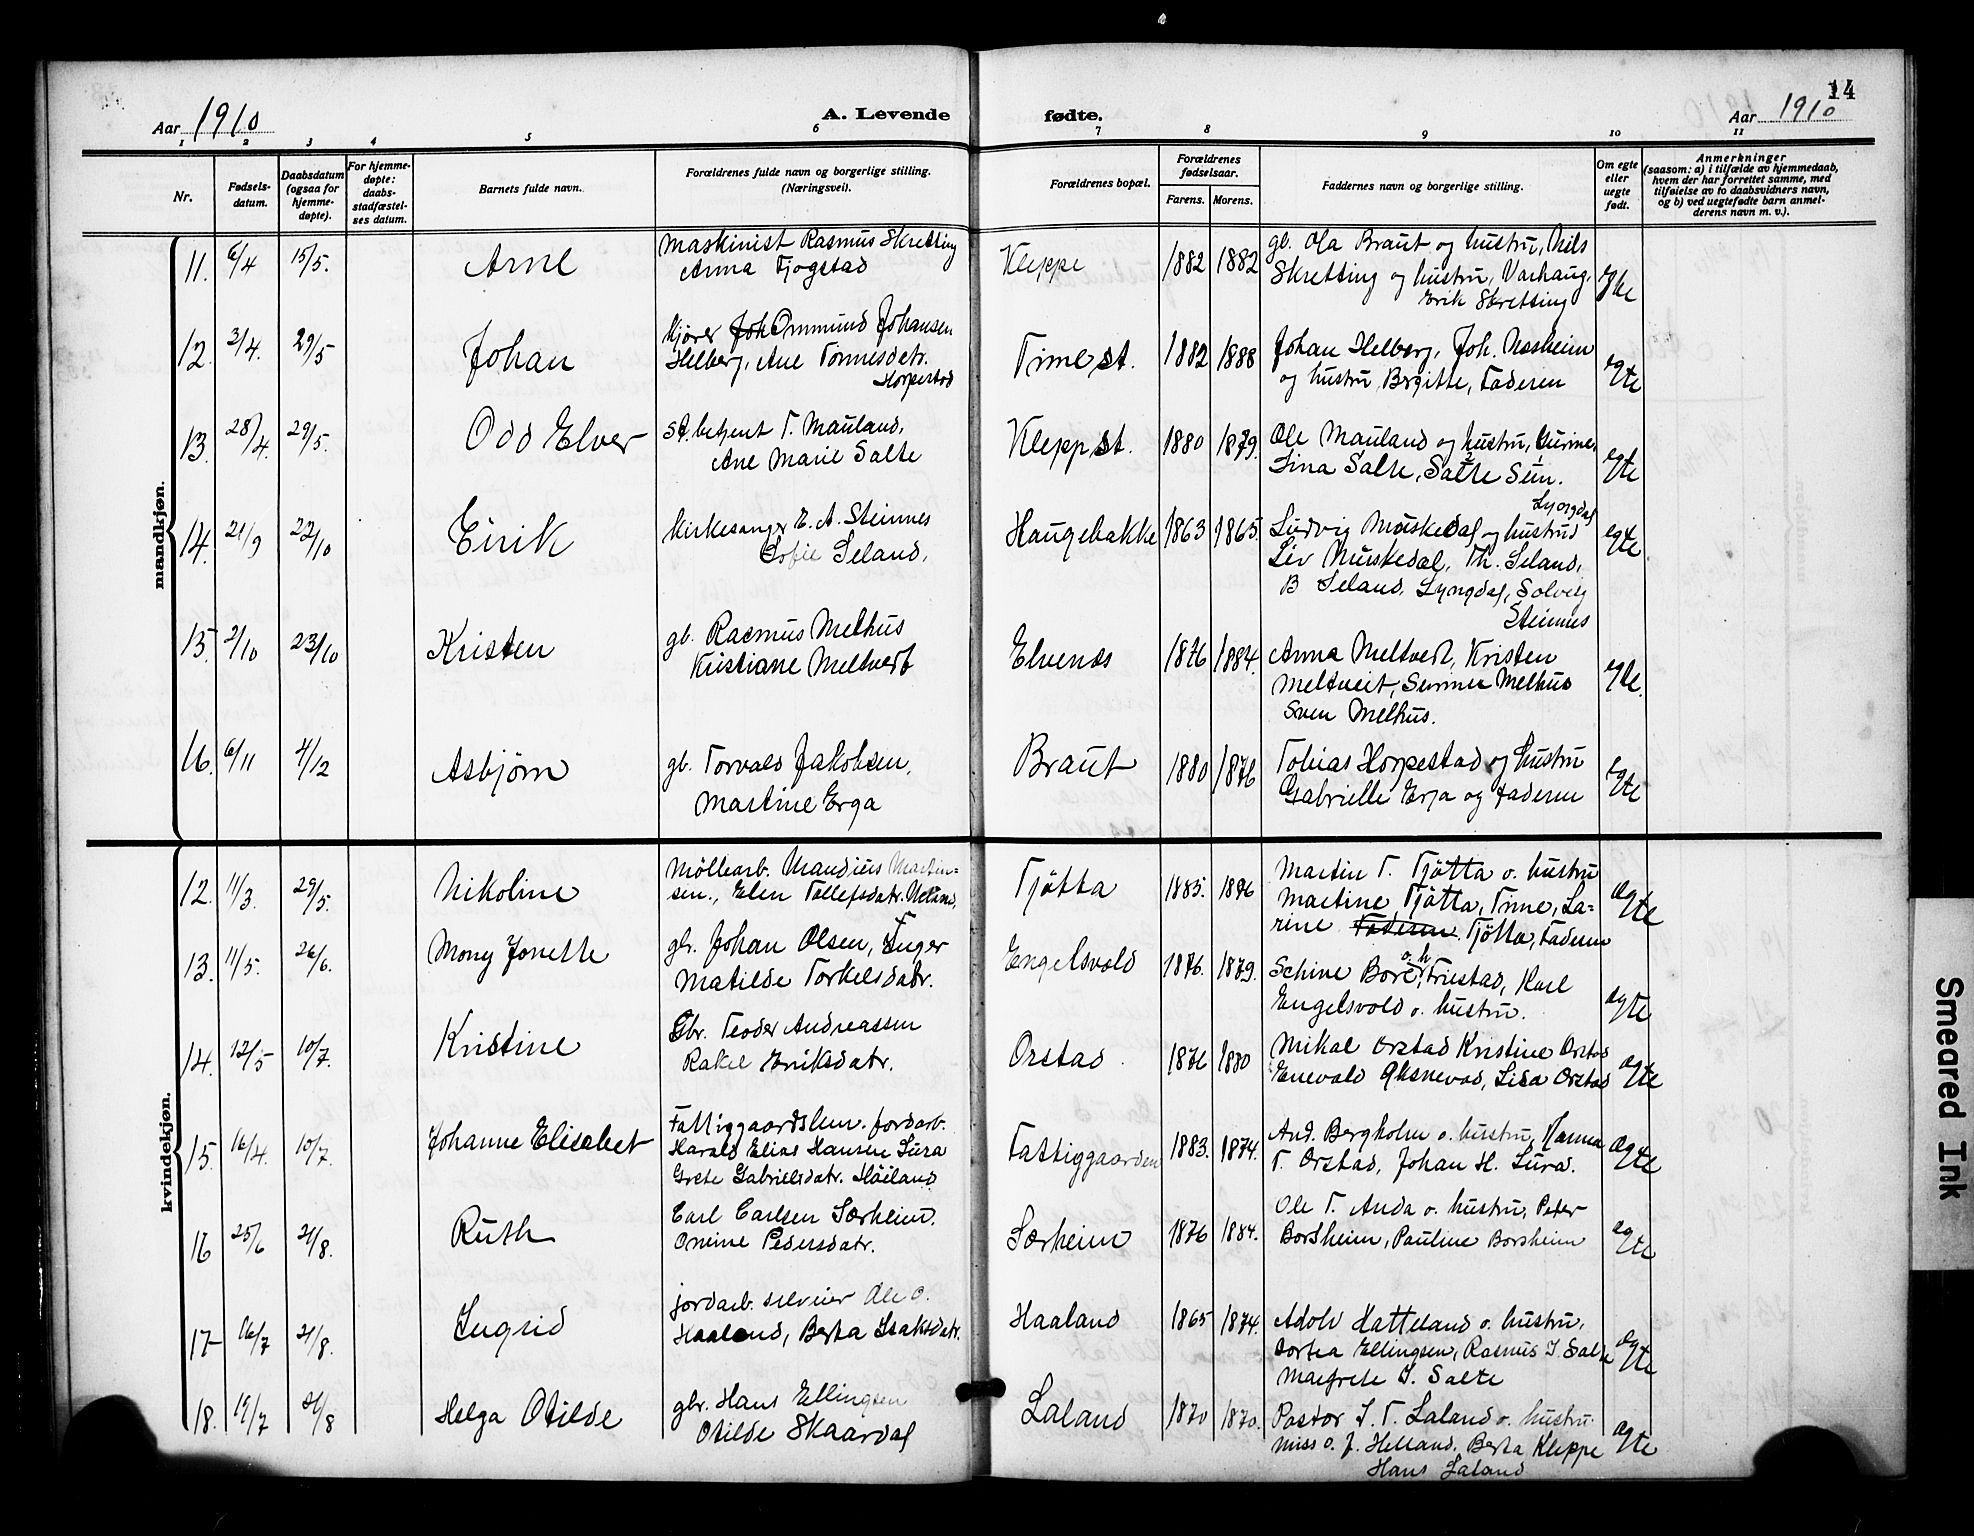 14
Aar 1910
A. Levende
fødte.
Aar 1910
1 2 3 4 5 6 7 8 9 10 11
Nr.
Fødsels-
datum.
Daabsdatum
(ogsaa for
hjemme-
døpte).
For hjemme-
døpte:
daabs-
stadfæstel-
ses datum.
Barnets fulde navn.
Forældrenes fulde navn og borgerlige stilling.
(Næringsvei).
Forældrenes bopæl.
Forældrenes
fødselsaar.
Farens. Morens.
Faddernes navn og borgerlige stilling.
Om egte
eller
uegte
født.
Anmerkninger
(saasom: a) i tilfælde av hjemmedaab,
hvem der har forrettet samme, med
tilføielse av to daabsvidners navn,
og b) ved uegtefødte barn anmel-
derens navn m. v.).
mandkjøn.
11. 6/4 15/5. Arne
Maskinist Rasmus Skretting
Anna Fjogstad
Kleppe 1882 1882
gb. Ola Braut og hustru, Nils
Skretting og hustru, Varhaug,
Erik Skretting
egte
12. 3/4. 29/5 Johan
kjører Joh Ommund Johansen
Helberg, Ane Tønnesdatr.
Horpestad
Time st. 1882 1888
Johan Helberg, Joh. Næsheim
og hustru Bergitte, Faderen
egte
13. 28/4. 29/5. Odd Elver
st. betjent T. Mauland,
Ane Marie Salte
Klepp st. 1880 1879.
Ole Mauland og hustru, Gurine,
Lina Salte, Salte
egte
14. 21/9 22/10 Eirik
Kirkesanger E. A. Steinnes
Sofie Seland,
Haugebakke 1863 1865.
Lyngdal
Ludvig Muskedal og hustru
Liv Muskedal, Th. Seland,
B Seland, Lyngdal, Solveig
Steinnes
egte
15. 2/10 23/10 Kristen
gb. Rasmus Melhus
Kristiane Meltvedt
Elvenæs 1876 1884.
Anna Meltvedt, Kristen
Meltveit, Melhus
Sven Melhus.
egte.
16. 6/11 4/12 Asbjørn
gb. Torvald Jakobsen,
Martine Erga
Braut 1880 1876
Tobias Horpestad og hustru
Gabrielle Erga og Faderen
egte
kvindekjøn.
12. 11/3. 29/5. Nikoline
Møllearb. Mandius Martin-
sen., Elen Tollefsdatr.
Tjøtta 1885. 1886
Martin T. Tjøtta o. hustru
Martine Tjøtta, Time, La-
rine Faderen Tjøtta, Faderen
egte
13. 11/5. 26/6. Mony Jonette
gb. Johan Olsen,
Matilde Torkelsdatr.
Engelsvold 1876. 1879.
o. h
Schine Bore, Friestad, Karl
Engelsvold o. hustru.
egte
14. 12/5 10/7. Kristine
Gbr. Teodor Andreassen
Rakel Eriksdatr.
Orstad 1880
Mikal Orstad Kristine Orstad
Enevald Øksnevad, Lisa Orstad
egte
15. 16/4. 10/7. Johanne Elisabet
Fattiggaardslem. jordarb.
Harald Elias Hansen Lura
Grete Gabrielsdatr. Høiland
Fattiggaarden 1883. 1874.
And. Bergholm o. hustru, Hanna
T. Orstad, Johan H. Lura.
egte
16 25/6 21/8. Ruth
Carl Carlsen Særheim.
Onine Pedersdatr.
Særheim 1876 1884.
Ole T. Anda o. hustru, Peter
Borsheim, Pauline Borsheim
egte
17 16/7 21/8. Ingrid
jordarb. selveier Ole O.
Haaland, Berta Isaksdatr.
Haaland 1865 1874.
Adolv Hatteland o. hustru,
Dortea Ellingsen, Rasmus I. Salte
Margrete I. Salte
egte
18. 19/7 21/8 Helga Otilde
gbr. Hans Ellingsen
Otilde Skaardal
Laland 1870 1870.
Pastor S. T. Laland o. hustru
miss o. J. Helland. Berta Kleppe
Hans Laland
egte
Smeared Ink